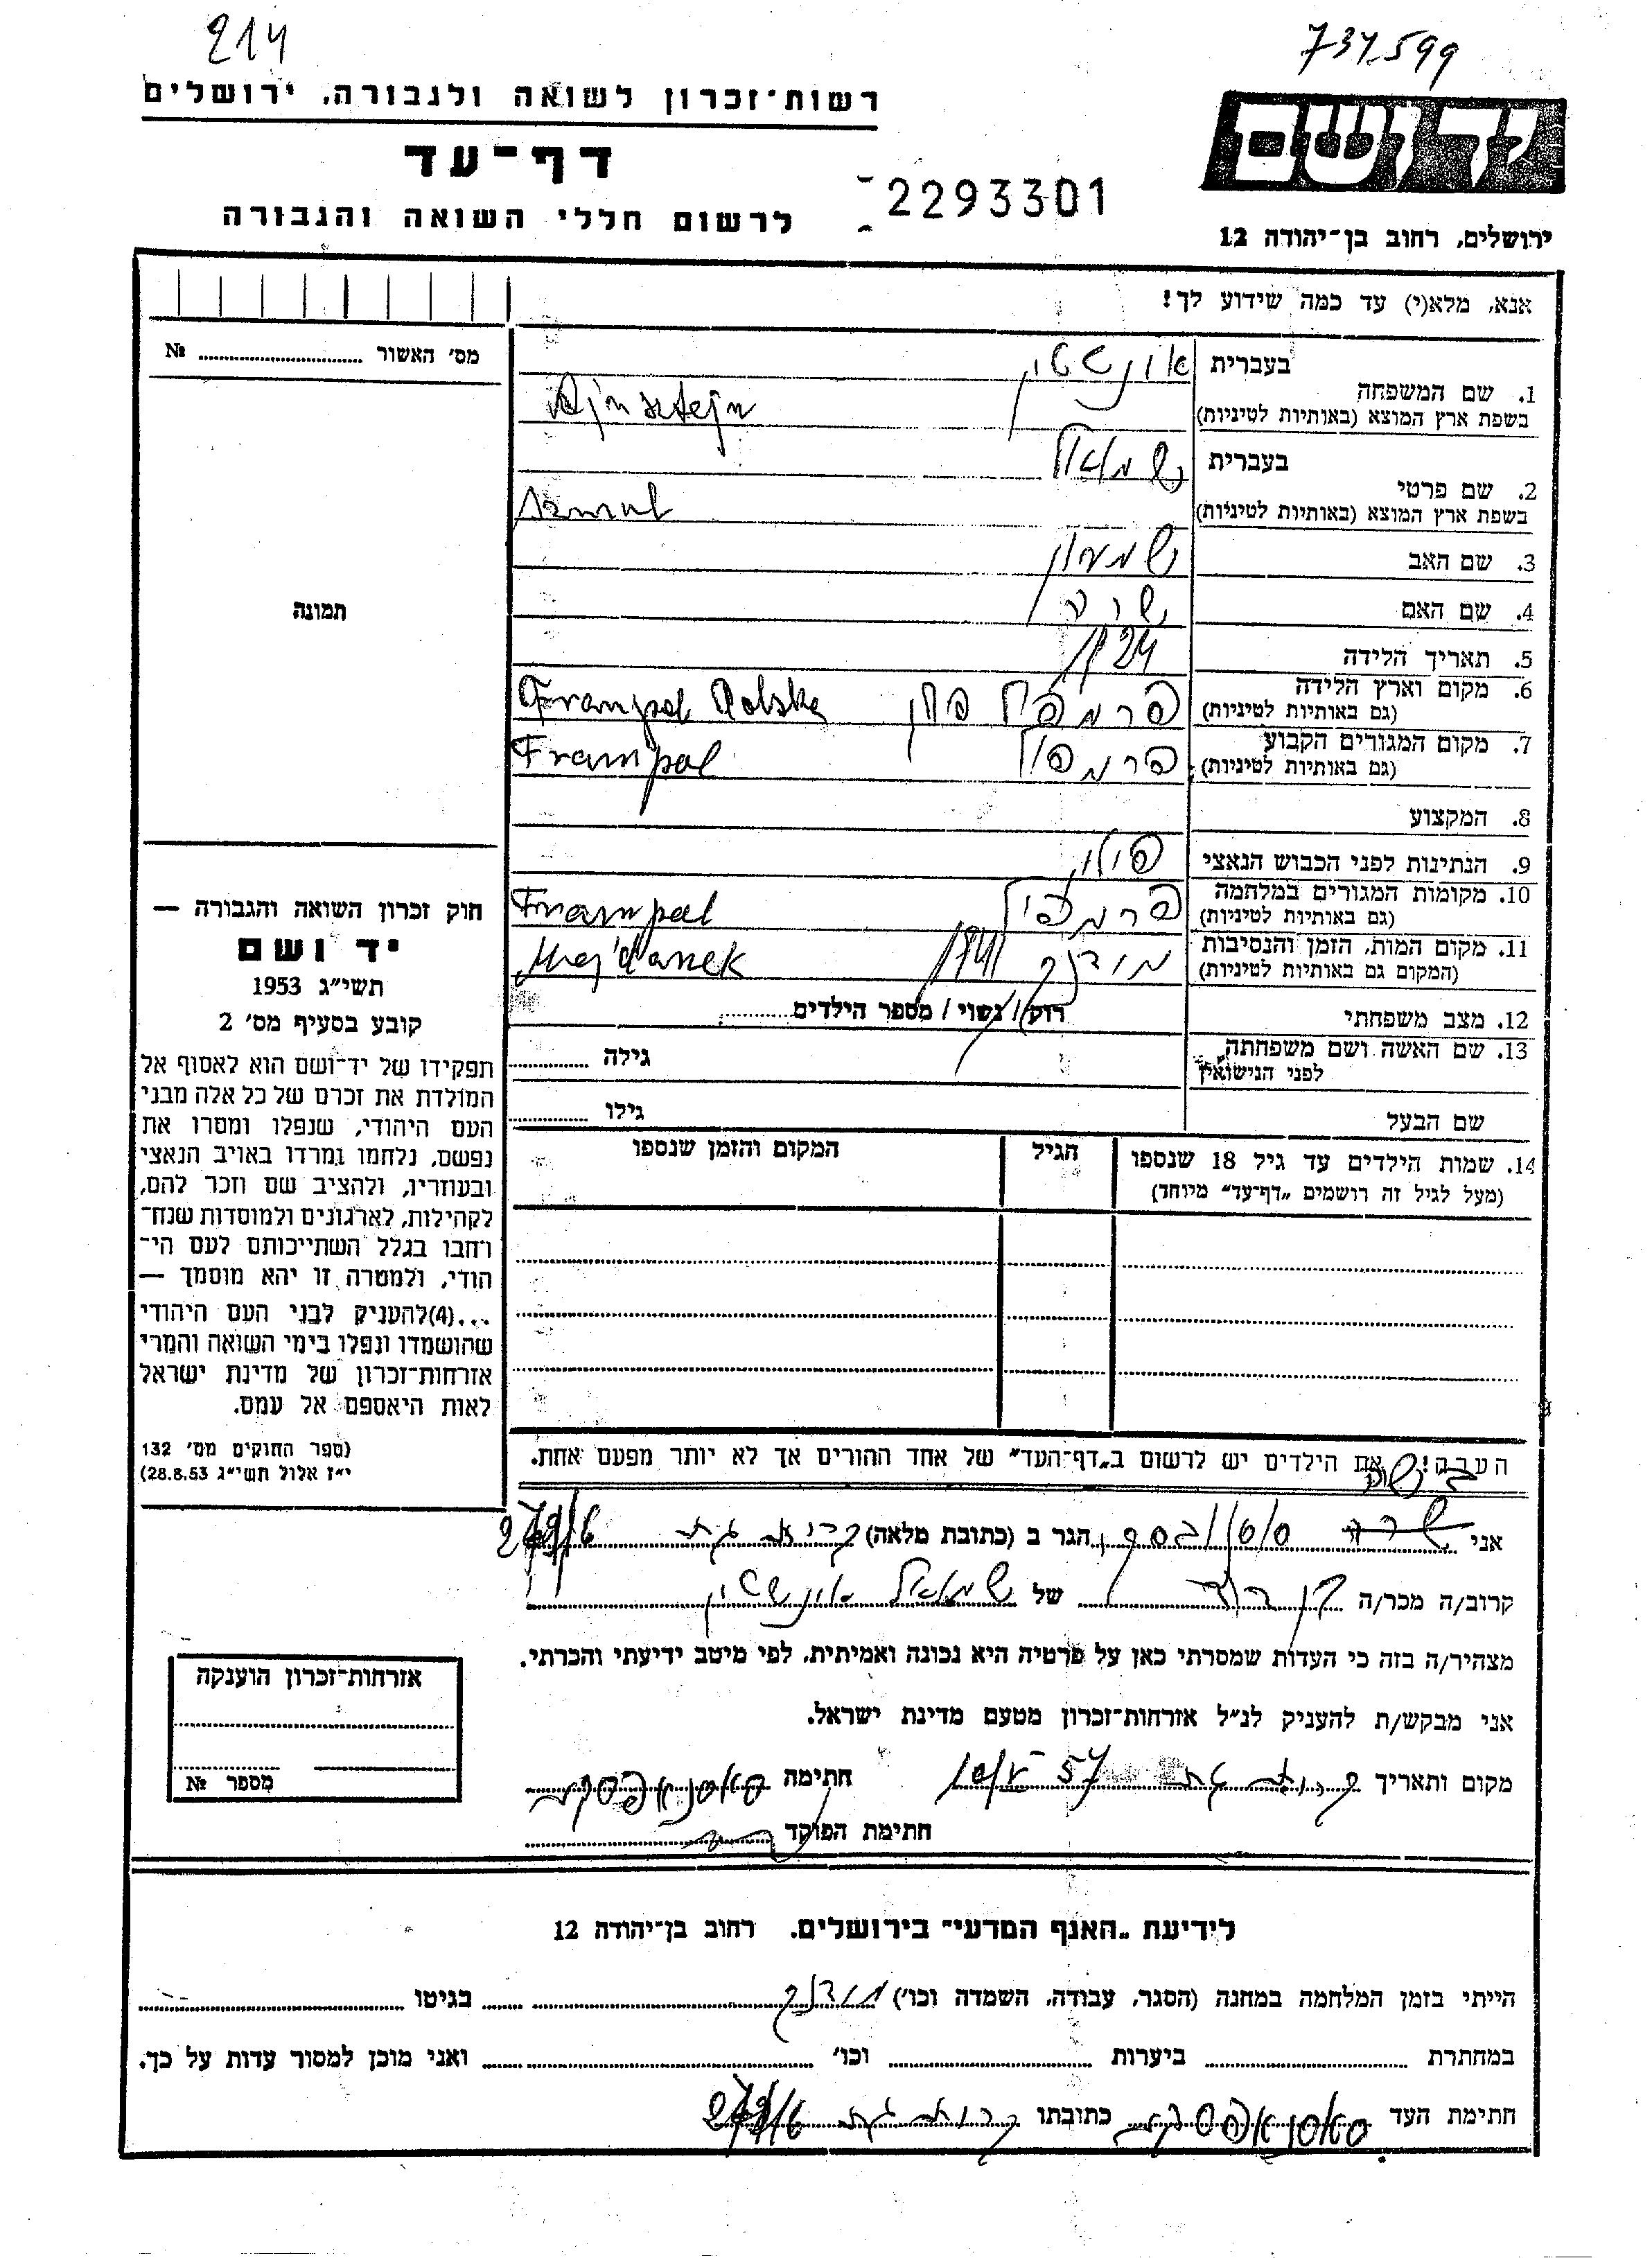 214
737599
רשות־זכרון לשואה ולגבורה, ירושלים
יד ושם
דף־עד
2293301
לרשום חללי השואה והגבורה
ירושלים, רחוב בן־יהודה 12
אנא, מלא(י) עד כמה שידוע לך!
מס׳ האשור № 
בעברית
1. שם המשפחה
בשפת ארץ המוצא (באותיות לטיניות)
בעברית שמואל
2. שם פרטי
בשפת ארץ המוצא (באותיות לטיניות)
3. שם האב שמעון
4. שם האם שרה
5. תאריך הלידה 1924
6. מקום וארץ הלידה
(גם באותיות לטיניות) Frampol Polska
7. מקום המגורים הקבוע פרמפול Frampol
(גם באותיות לטיניות)
8. המקצוע
9. הנתינות לפני הכבוש הנאצי
10. מקומות המגורים במלחמה פרמפול Frampol
(גם באותיות לטיניות)
11. מקום המות, הזמן והנסיבות
(המקום גם באותיות לטיניות) Majdanek
12. מצב משפחתי רווק / נשוי / מספר הילדים
13. שם האשה ושם משפחתה לפני הנישואין גילה
שם הבעל גילו
14. שמות הילדים עד גיל 18 שנספו הגיל המקום והזמן שנספו
(מעל לגיל זה רושמים „דף־עד״ מיוחד)
הערה! את הילדים יש לרשום ב„דף־העד״ של אחד ההורים אך לא יותר מפעם אחת.
תמונה
חוק זכרון השואה והגבורה —
יד ושם
תשי״ג 1953
קובע בסעיף מס׳ 2
תפקידו של יד־ושם הוא לאסוף אל
המולדת את זכרם של כל אלה מבני
העם היהודי, שנפלו ומסרו את
נפשם, נלחמו ומרדו באויב הנאצי
ובעוזריו, ולהציב שם וזכר להם,
לקהילות, לארגונים ולמוסדות שנח־
רחבו בגלל השתייכותם לעם הי־
הודי, ולמטרה זו יהא מוסמך —
...(4)להעניק לבני העם היהודי
שהושמדו ונפלו בימי השואה והמרי
אזרחות־זכרון של מדינת ישראל
לאות היאספם אל עמם.
(ספר החוקים מס׳ 132
י״ז אלול תשי״ג 28.8.53)
אני הגר ב (כתובת מלאה) קרית גת
קרוב/ה מכר/ה בן דוד של שמואל
מצהיר/ה בזה כי העדות שמסרתי כאן על פרטיה היא נכונה ואמיתית, לפי מיטב ידיעתי והכרתי.
אני מבקש/ת להעניק לנ״ל אזרחות־זכרון מטעם מדינת ישראל.
מקום ותאריך קרית גת חתימה
חתימת הפוקד
אזרחות־זכרון הוענקה
מספר №
לידיעת „האגף המדעי״ בירושלים. רחוב בן־יהודה 12
הייתי בזמן המלחמה במחנה (הסגר, עבודה, השמדה וכו׳) בגיטו
במחתרת ביערות וכו׳ ואני מוכן למסור עדות על כך.
חתימת העד כתובתו קרית גת